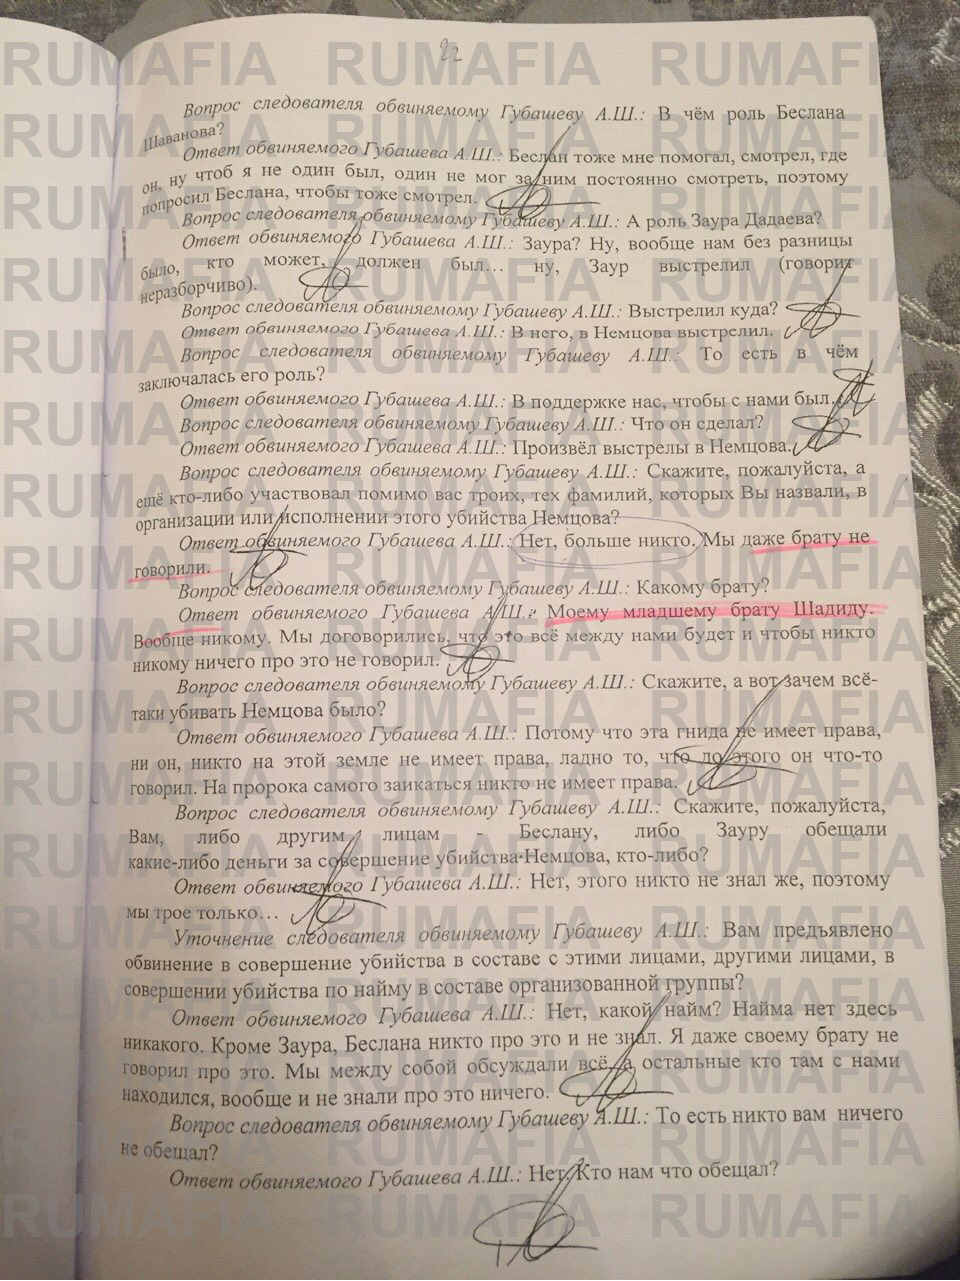 22
Вопрос следователя обвиняемому Губашеву А.Ш.: В чём роль Беслана
Шаванова?
Ответ обвиняемого Губашева А.Ш.: Беслан тоже мне помогал, смотрел, где
он, ну чтоб я не один был, один не мог за ним постоянно смотреть, поэтому
попросил Беслана, чтобы тоже смотрел.
Вопрос следователя обвиняемому Губашеву А.Ш.: А роль Заура Дадаева?
Ответ обвиняемого Губашева А.Ш.: Заура? Ну, вообще нам без разницы
было, кто может, должен был… ну, Заур выстрелил (говорит
неразборчиво).
Вопрос следователя обвиняемому Губашеву А.Ш.: Выстрелил куда?
Ответ обвиняемого Губашева А.Ш.: В него, в Немцова выстрелил.
Вопрос следователя обвиняемому Губашеву А.Ш.: То есть в чём
заключалась его роль?
Ответ обвиняемого Губашева А.Ш.: В поддержке нас, чтобы с нами был.
Вопрос следователя обвиняемому Губашеву А.Ш.: Что он сделал?
Ответ обвиняемого Губашева А.Ш.: Произвёл выстрелы в Немцова.
Вопрос следователя обвиняемому Губашеву А.Ш.: Скажите, пожалуйста, а
ещё кто-либо участвовал помимо вас троих, тех фамилий, которых Вы назвали, в
организации или исполнении этого убийства Немцова?
Ответ обвиняемого Губашева А.Ш.: Нет, больше никто. Мы даже брату не
говорили.
Вопрос следователя обвиняемому Губашеву А.Ш.: Какому брату?
Ответ обвиняемого Губашева А.Ш.: Моему младшему брату Шадиду.
Вообще никому. Мы договорились, что это всё между нами будет и чтобы никто
никому ничего про это не говорил.
Вопрос следователя обвиняемому Губашеву А.Ш.: Скажите, а вот зачем всё-
таки убивать Немцова было?
Ответ обвиняемого Губашева А.Ш.: Потому что эта гнида не имеет права,
ни он, никто на этой земле не имеет права, ладно то, что до этого он что-то
говорил. На пророка самого заикаться никто не имеет права.
Вопрос следователя обвиняемому Губашеву А.Ш.: Скажите, пожалуйста,
Вам, либо другим лицам - Беслану, либо Зауру обещали
какие-либо деньги за совершение убийства Немцова, кто-либо?
Ответ обвиняемого Губашева А.Ш.: Нет, этого никто не знал же, поэтому
мы трое только…
Уточнение следователя обвиняемому Губашеву А.Ш.: Вам предъявлено
обвинение в совершение убийства в составе с этими лицами, другими лицами, в
совершении убийства по найму в составе организованной группы?
Ответ обвиняемого Губашева А.Ш.: Нет, какой найм? Найма нет здесь
никакого. Кроме Заура, Беслана никто про это и не знал. Я даже своему брату не
говорил про это. Мы между собой обсуждали всё, а остальные кто там с нами
находился, вообще и не знали про это ничего.
Вопрос следователя обвиняемому Губашеву А.Ш.: То есть никто вам ничего
не обещал?
Ответ обвиняемого Губашева А.Ш.: Нет. Кто нам что обещал?